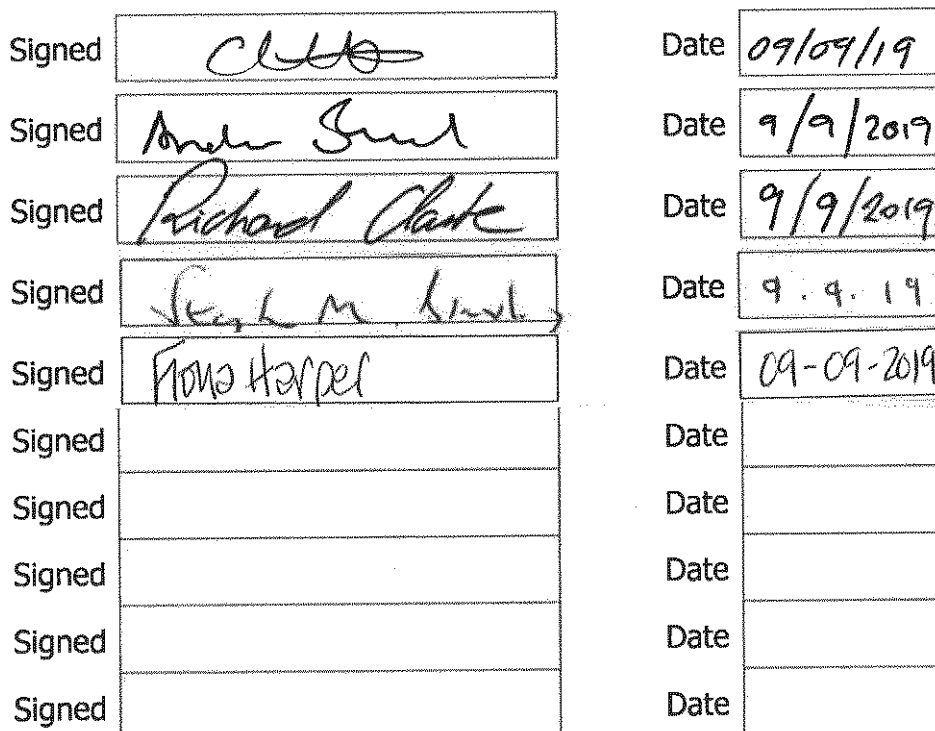 Signed Date 09/09/19
Signed Date 9/9/2019
Signed Richard Clarke Date 9/9/2019
Signed M Date 9.9.19
Signed Fiona Harper Date 09-09-2019
Signed Date
Signed Date
Signed Date
Signed Date
Signed Date